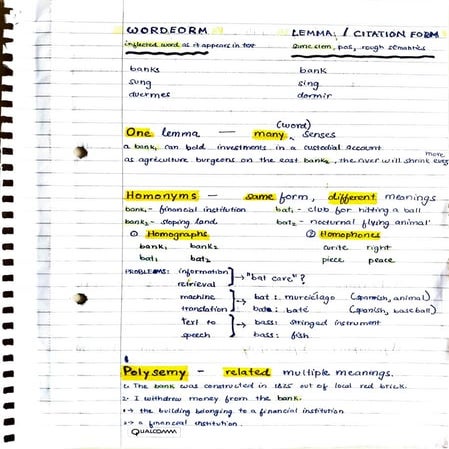 WORDFORM LEMMA / CITATION FORM
inflected word as it appears in text same stem, pos, rough semantics
banks bank
sung sing
duermes dormir
One lemma — many (word) senses
a bank, can hold investments in a custodial account
as agriculture burgeons on the east bank₂, the river will shrink even more
Homonyms — same form, different meanings
bank₁ - financial institution bat₁ - club for hitting a ball
bank₂ - sloping land bat₂ - nocturnal flying animal
① Homographs ② Homophones
bank₁ bank₂ write right
bat₁ bat₂ piece peace
PROBLEMS: information retrieval → "bat care"?
machine translation → bat : murciélago (spanish, animal)
bat : bate (spanish, baseball)
text to speech → bass: stringed instrument
bass: fish
Polysemy - related multiple meanings.
1. The bank was constructed in 1825 out of local red brick.
2. I withdrew money from the bank.
1→ the building belonging to a financial institution
2→ a financial institution.
QUALCOMM